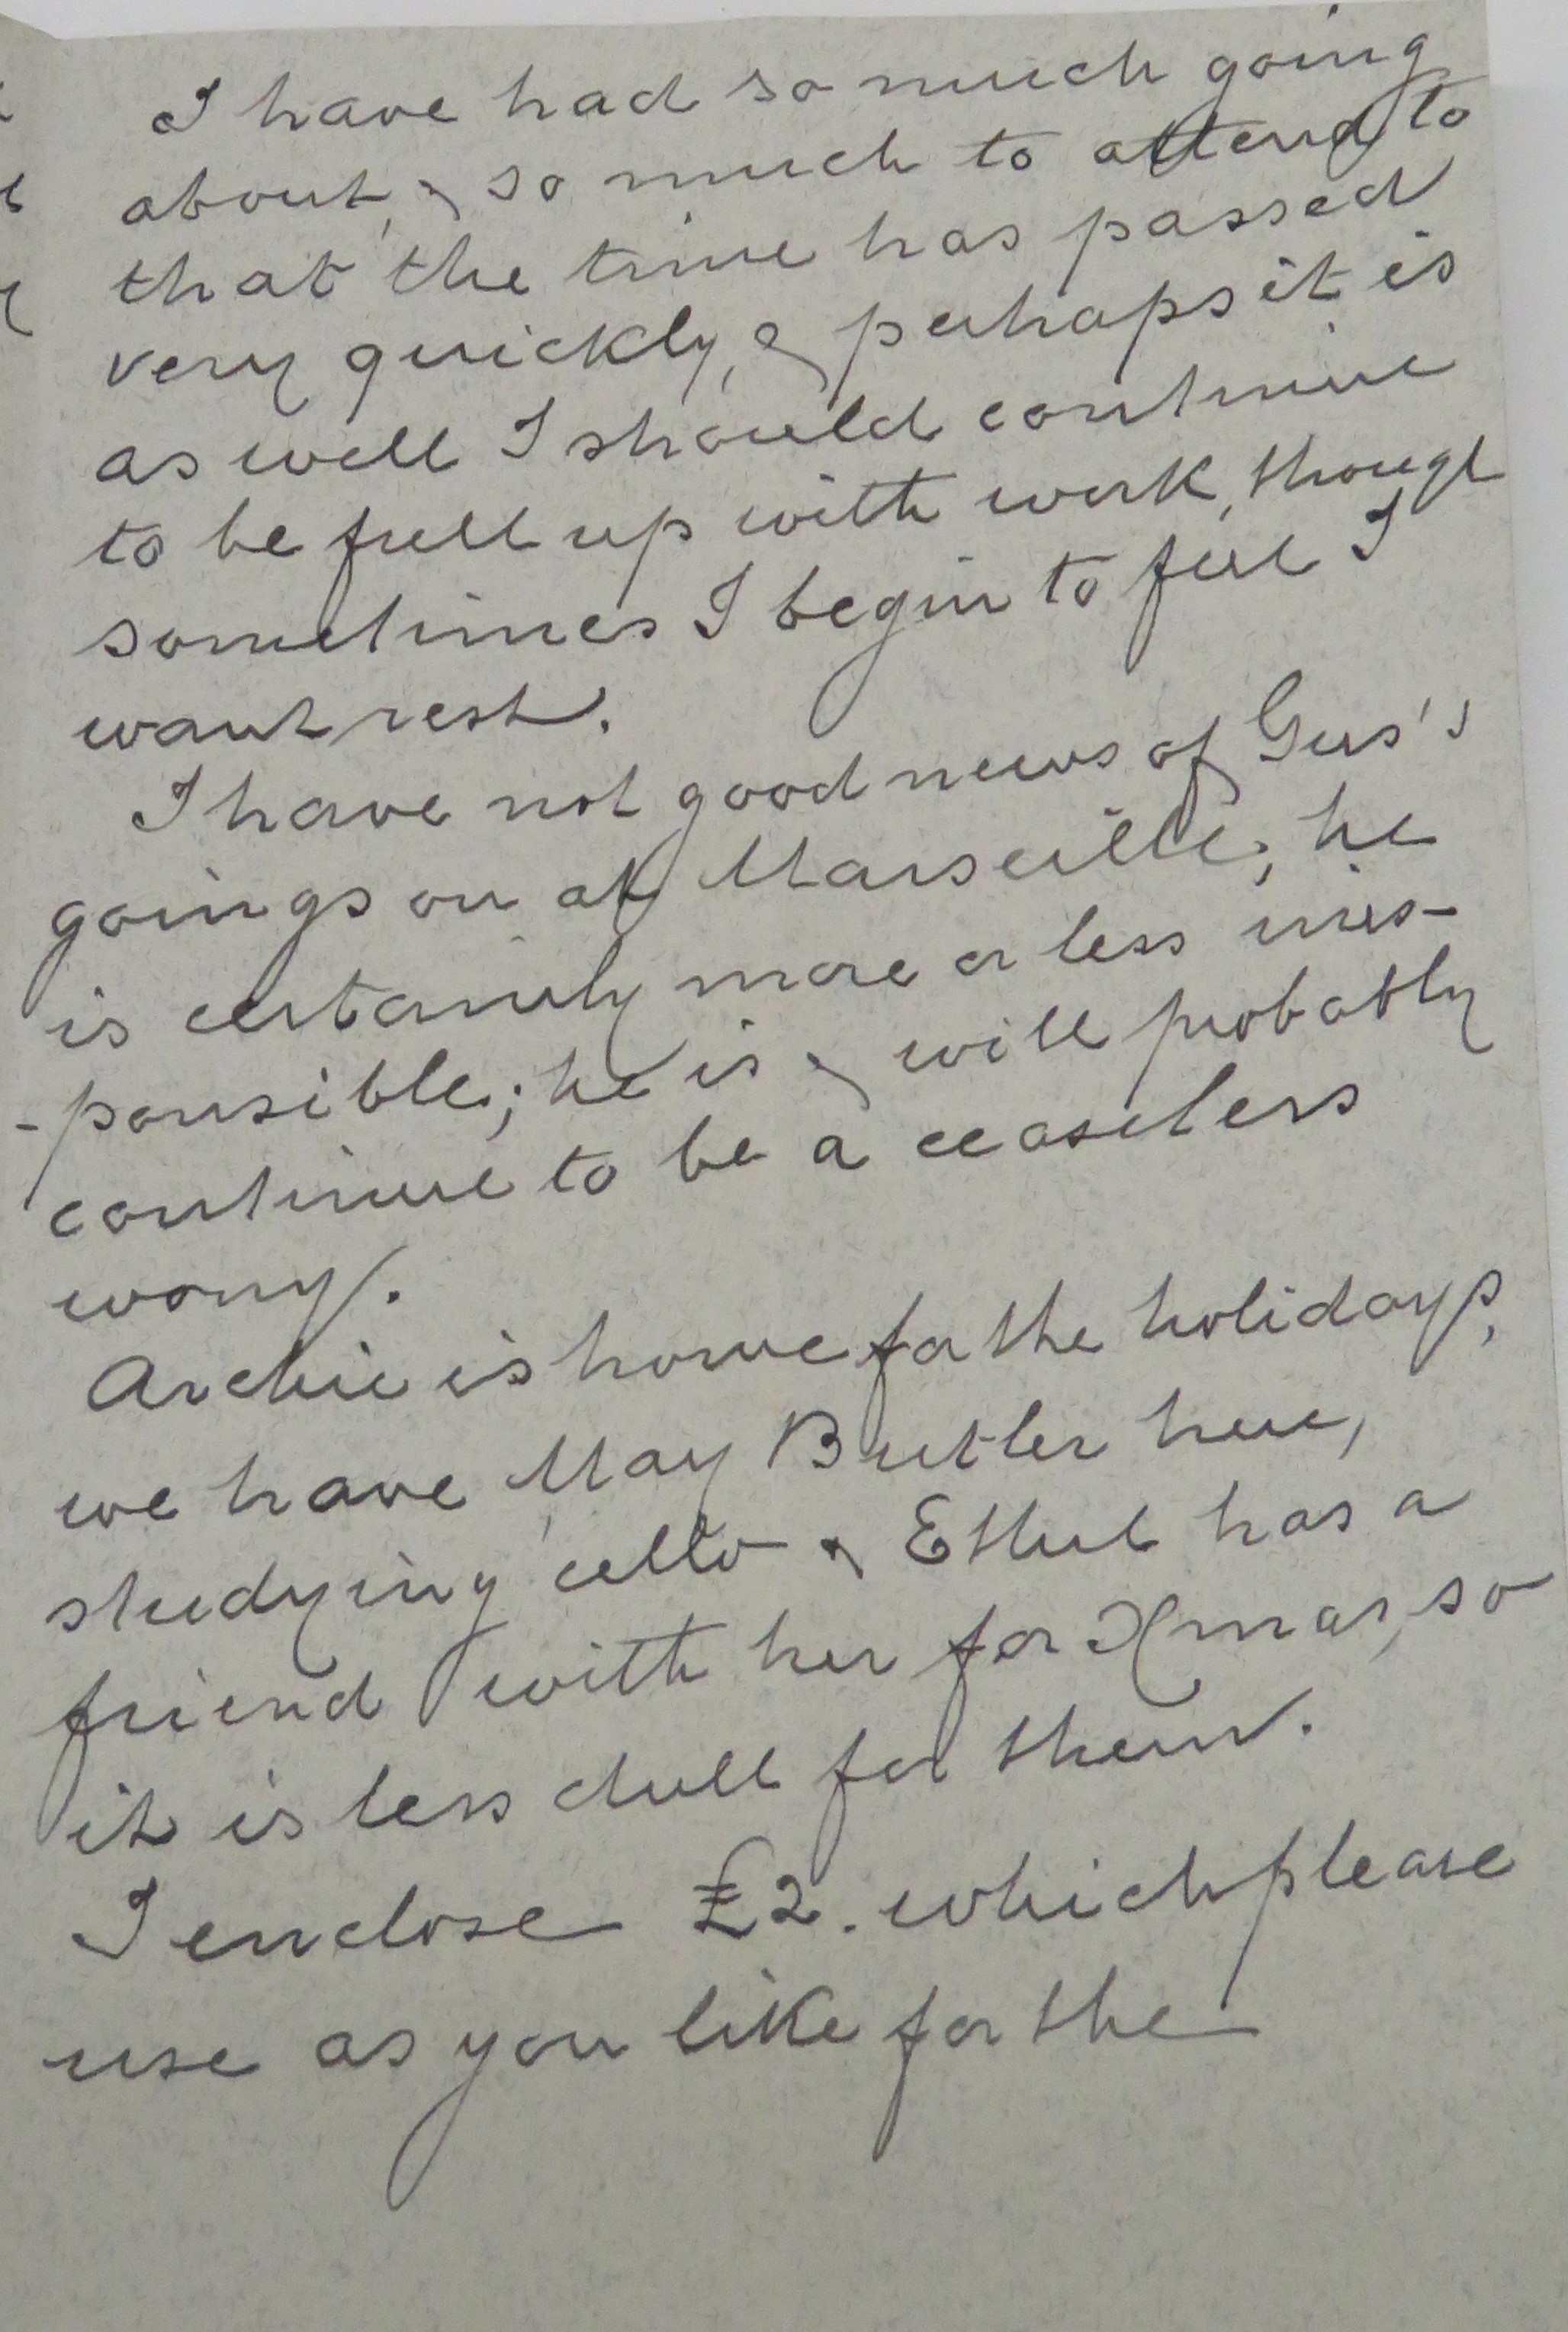 I have had so much going
about, & so much to attend to
that the time has passed
very quickly, & perhaps it is
as well I should continue
to be full up with work, though
sometimes I begin to feel I
want rest.
I have not good news of Gus's
goings on at Marseille, he
is certainly more or less irres-
-ponsible; he is & will probably
continue to be a ceaseless
worry.
Archie is home for the holidays,
we have May Butler here,
studying 'cello & Ethel has a
friend with her for Xmas, so
it is less dull for them.
I enclose £2. which please
use as you like for the